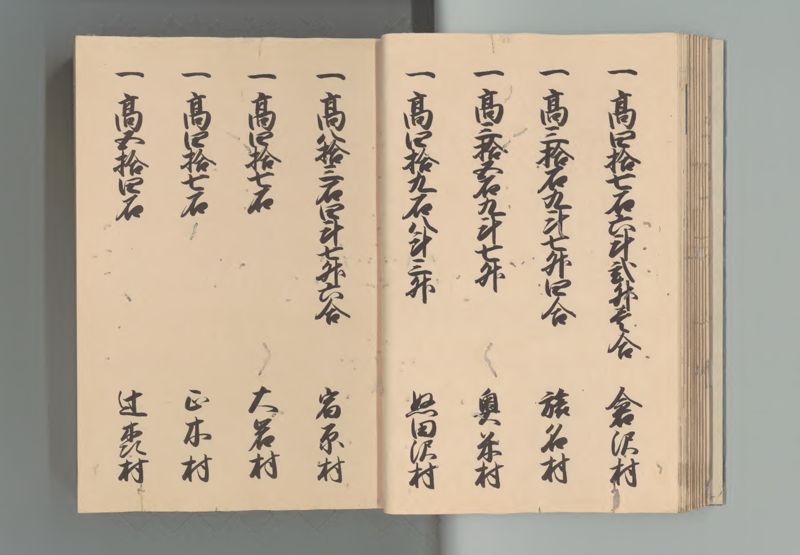 一 高四拾七石六斗弐升壱合 倉沢村
一 高三拾石九斗七升四合 䕃名村
一 高三拾五石九斗七升 奥平村
一 高四拾九石八斗三升 田沢村
一 高八拾三石四斗七升六合 宿原村
一 高四拾七石 大岩村
一 高四拾七石 正木村
一 高五拾四石 辻森村